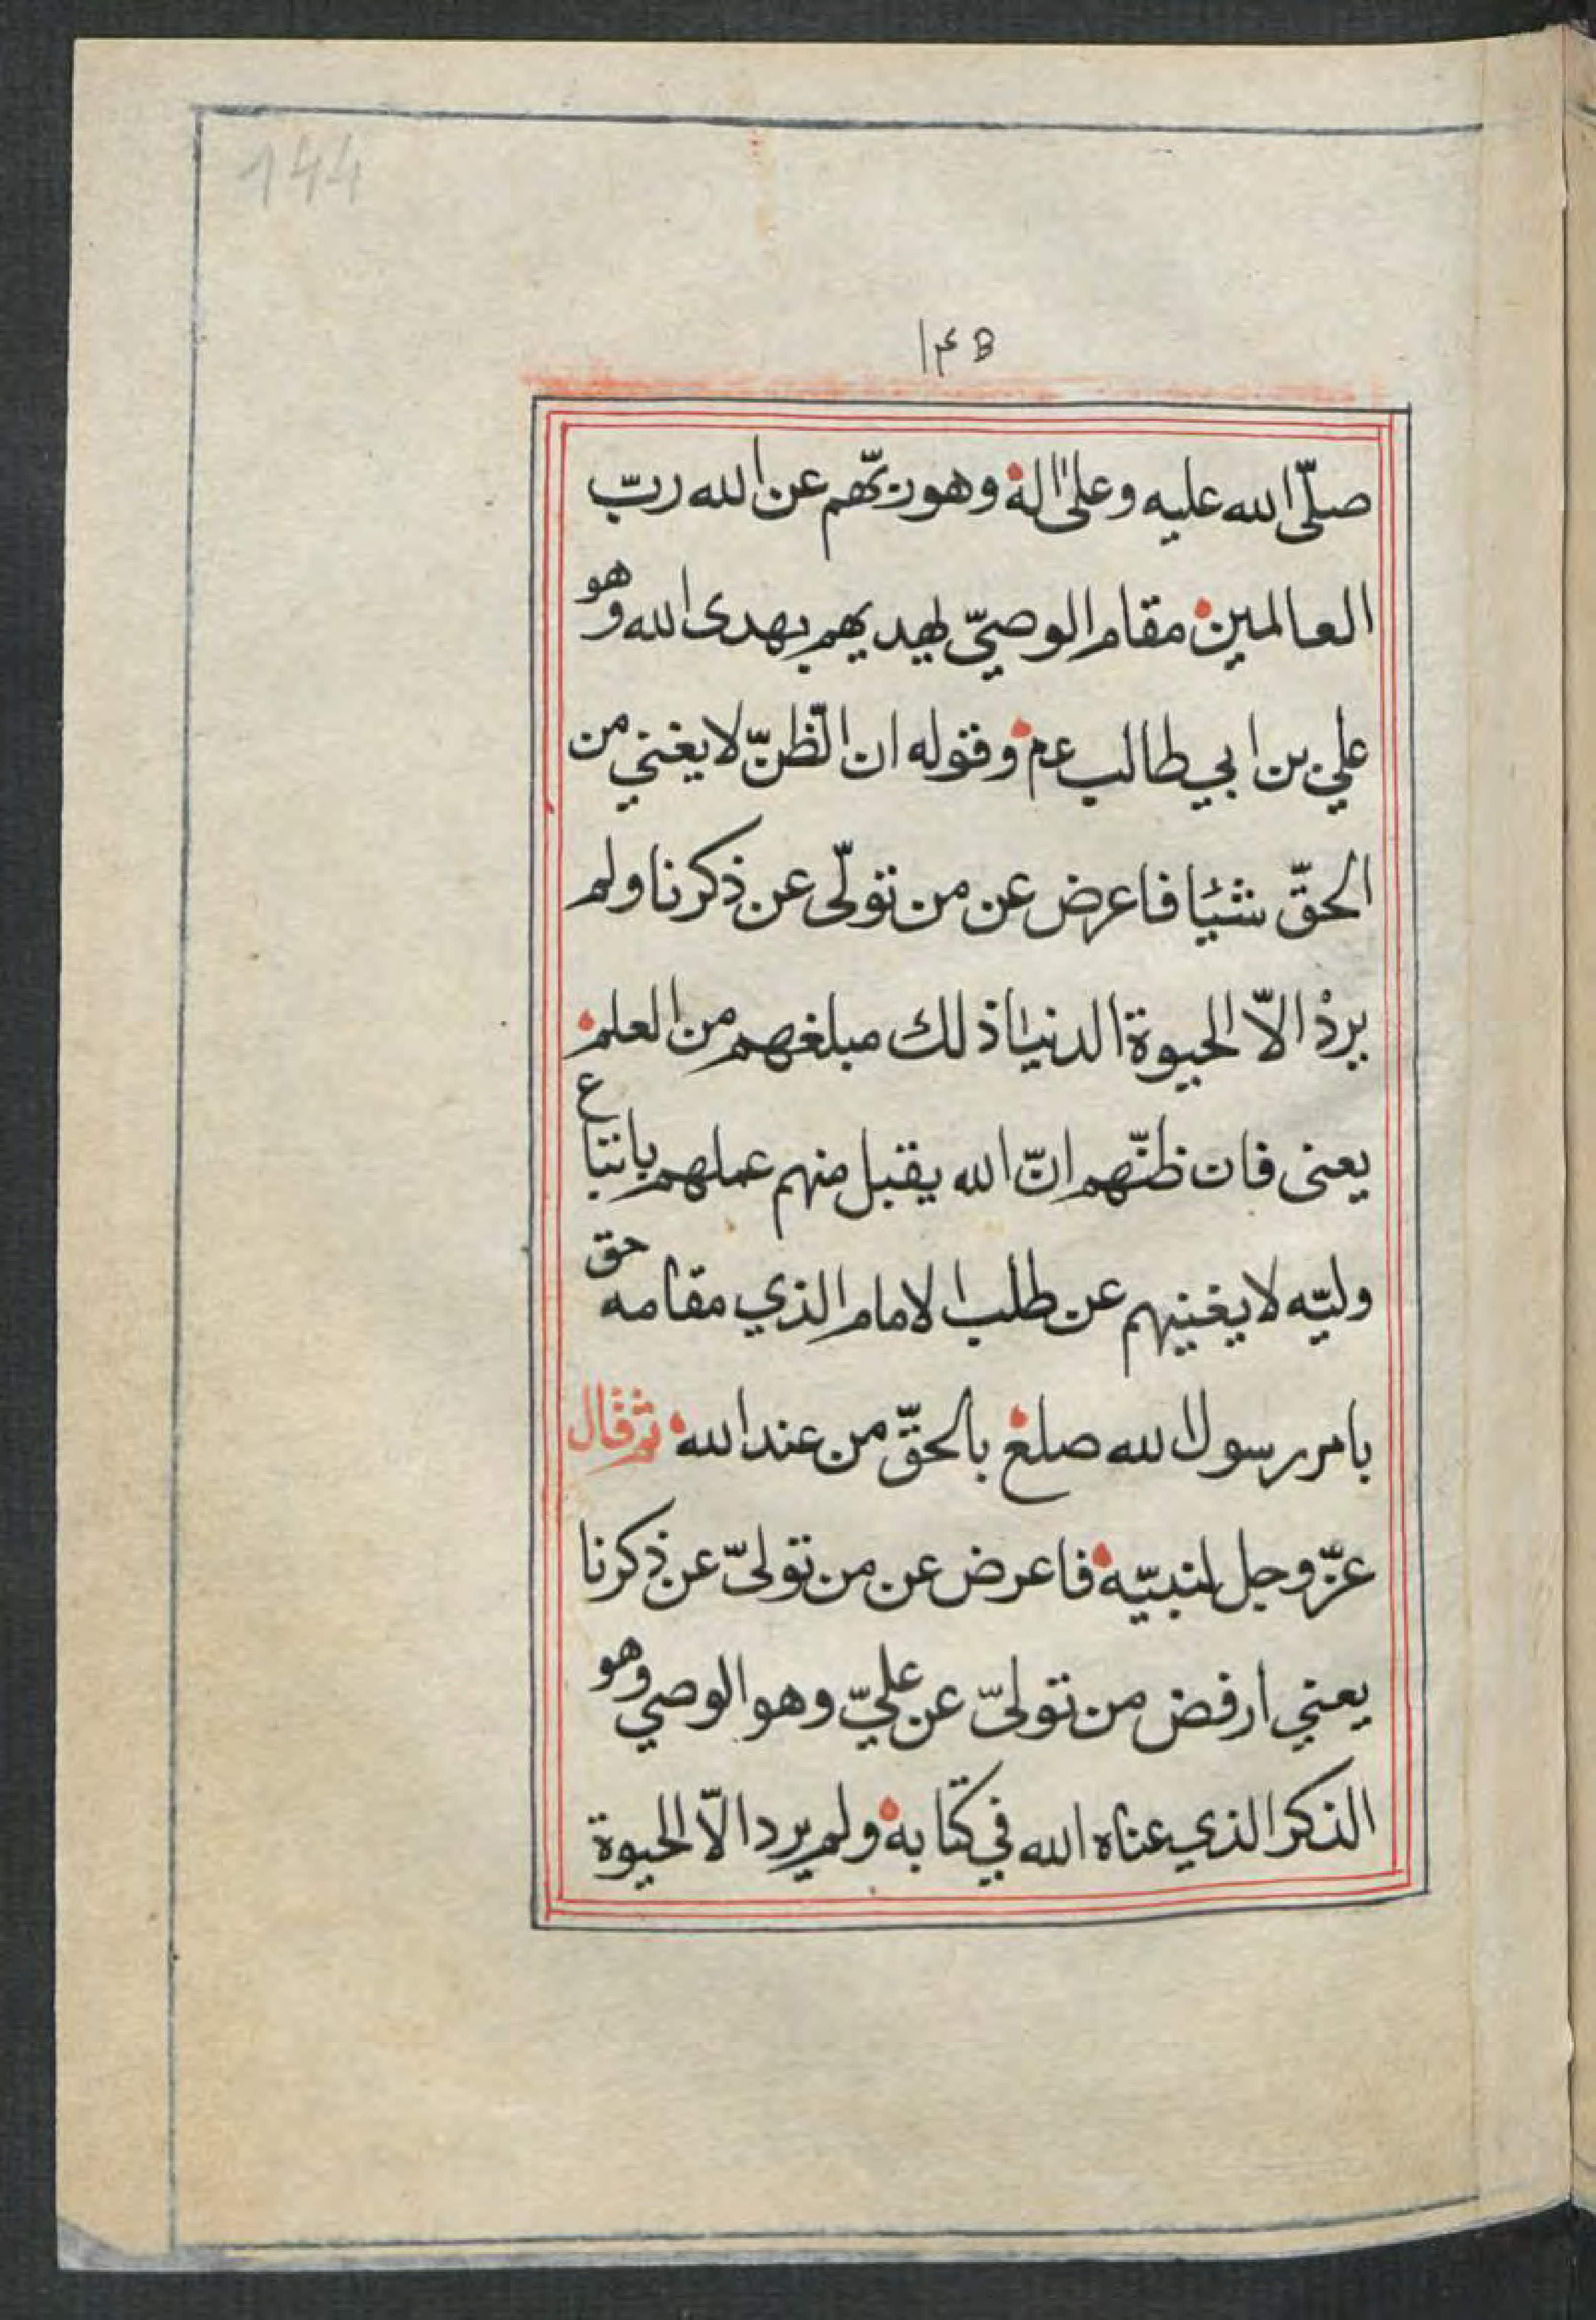 144
١٤٥
صلّى الله عليه وعلى اله وهو ربّهم عن الله ربّ
العالمين مقام الوصيّ ليهديهم بهدى الله وهو
علي بن ابي طالب عم وقوله ان الظنّ لا يغني من
الحقّ شيئا فاعرض عن من تولّى عن ذكرنا ولم
يرد الّا الحيوة الدنيا ذلك مبلغهم من العلم
يعني فان ظنّهم انّ الله يقبل منهم عملهم باتباع
وليّه لا يغنيهم عن طلب الامام الذي مقامه حق
بامر رسول الله صلع بالحقّ من عند الله ثم قال
عزّ وجل لنبيّه فاعرض عن من تولىّ عن ذكرنا
يعني ارفض من تولىّ عن عليّ وهو الوصي وهو
الذكر الذي عناه الله في كتابه ولم يرد الّا الحيوة